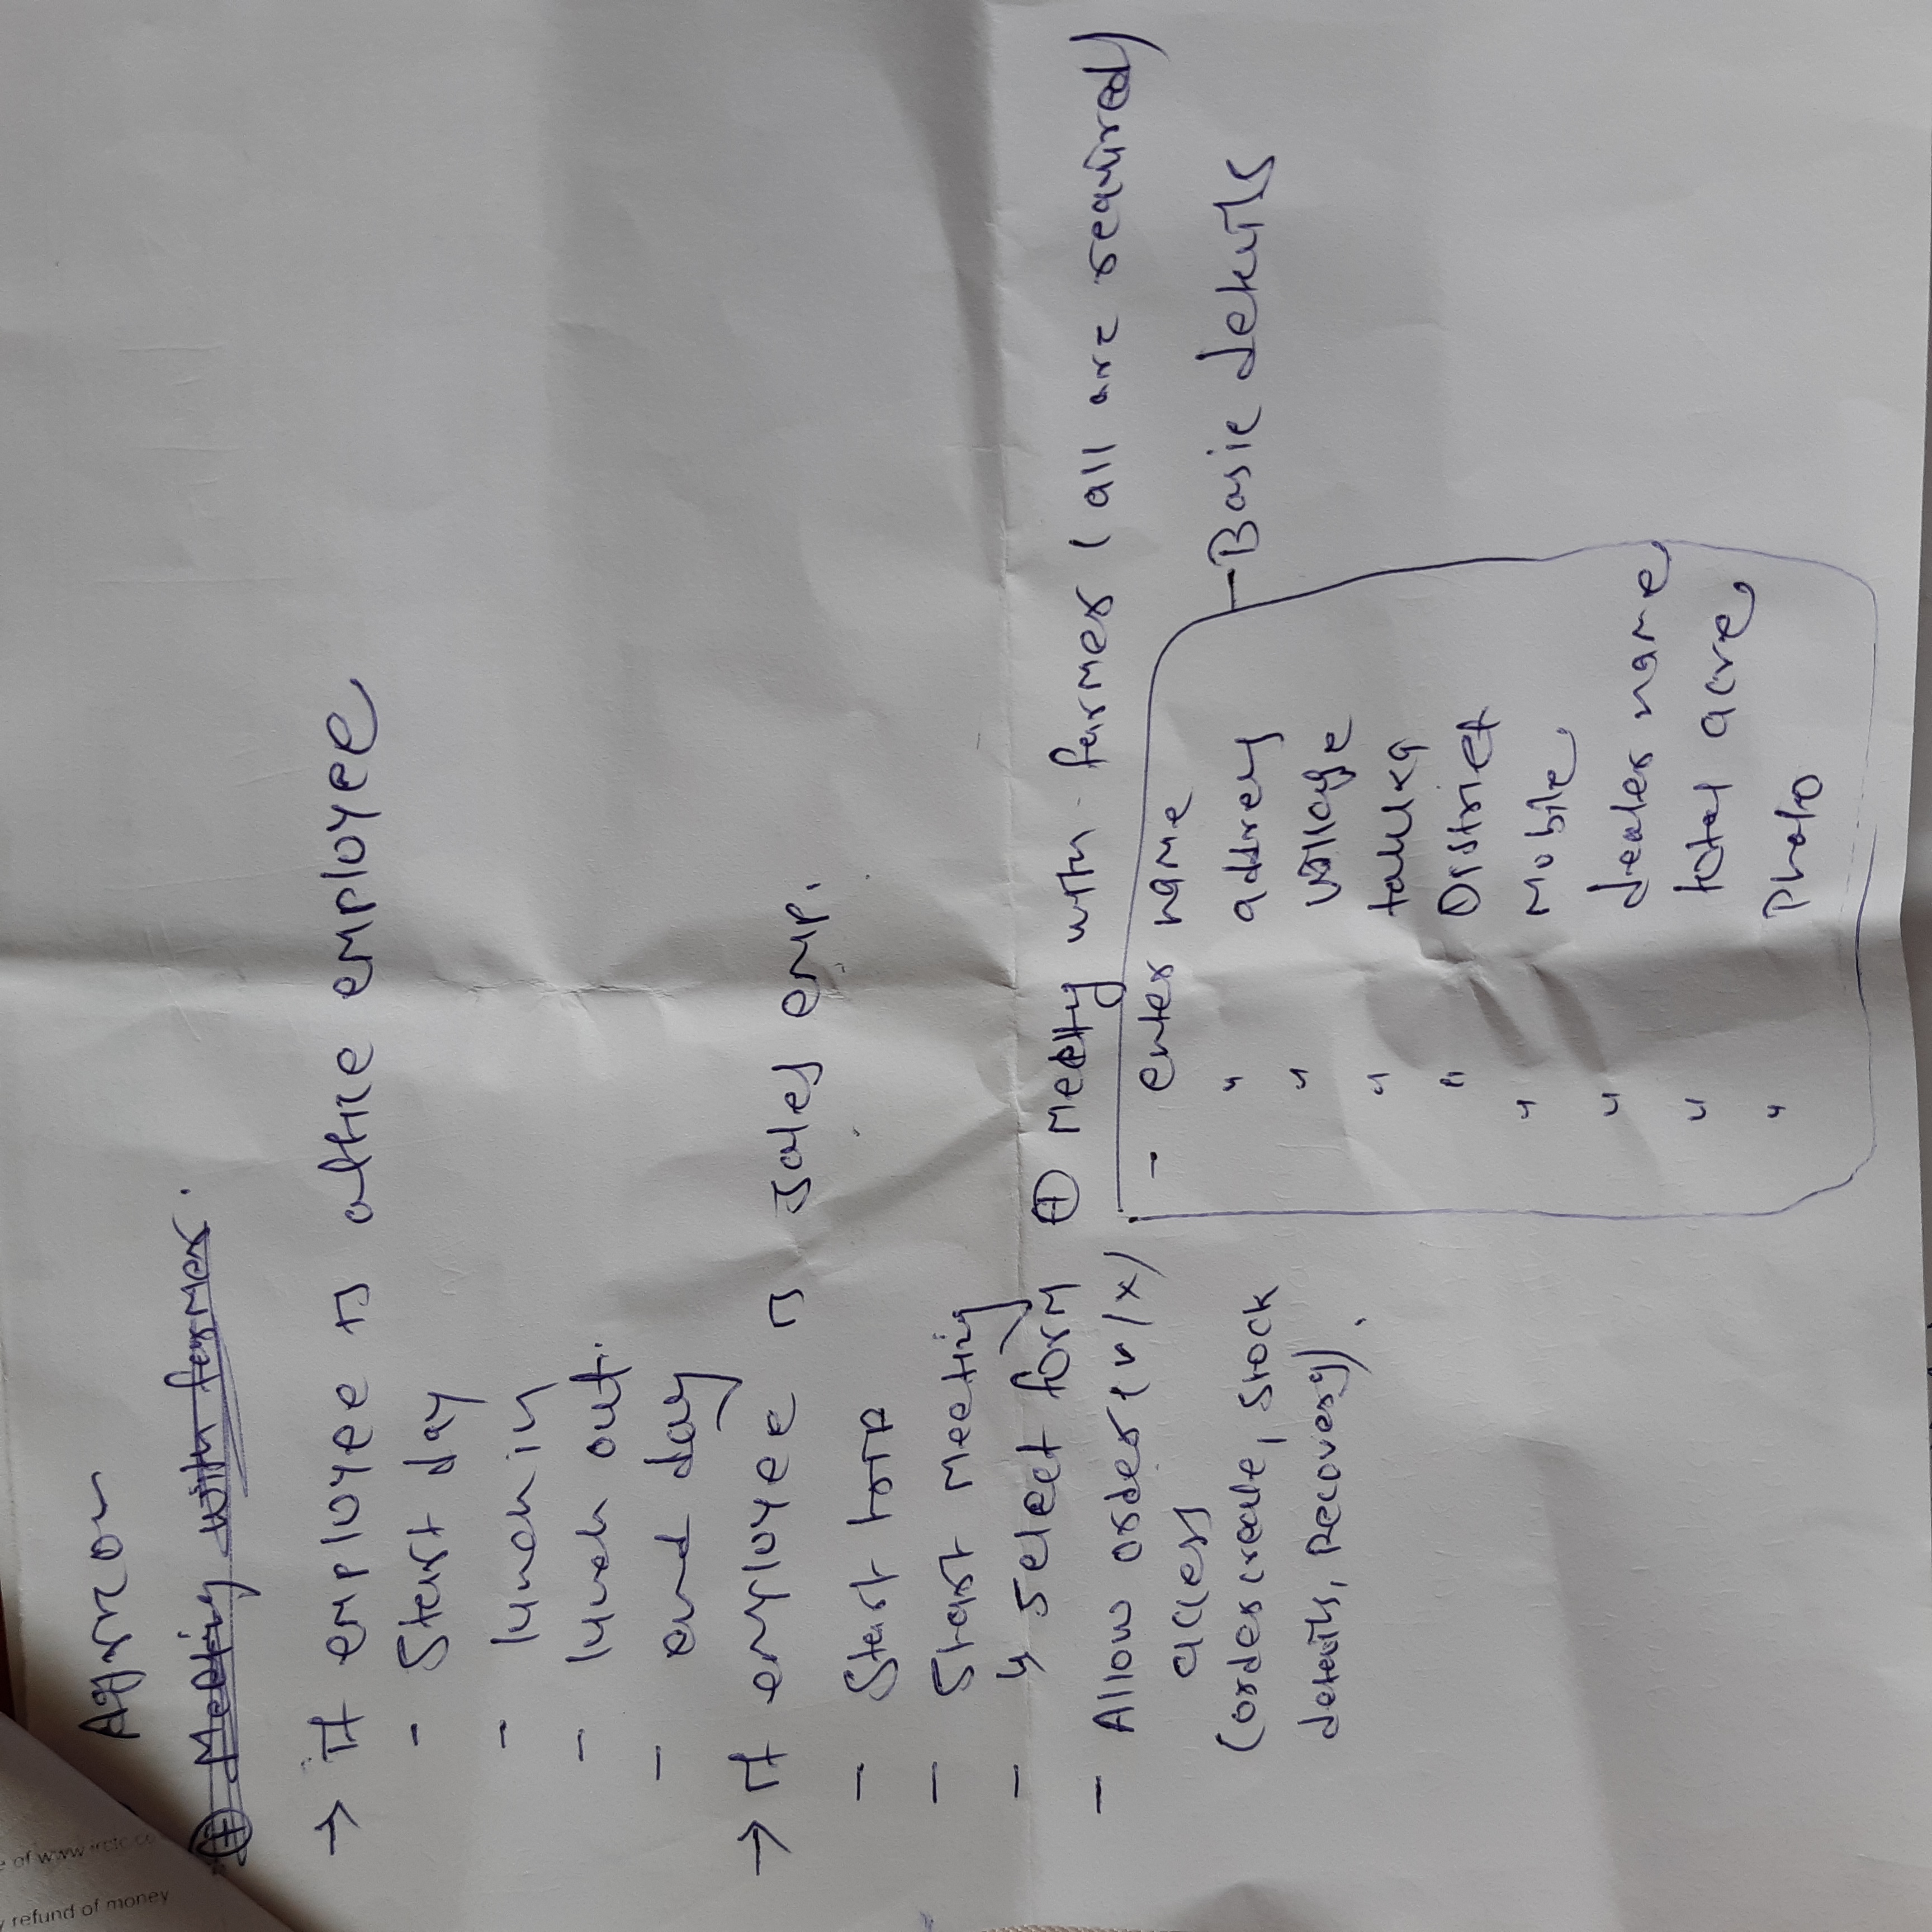 e of www.irctc.co
refund of money
Agricon
① Meeting with farmer.
→ if employee is office employee
- Start day
- lunch in
- lunch out.
- end day
→ if employee is sales emp.
- Start trip
- Start Meeting
- ↳ select form
- Allow order (✓/x)
access
(order create, stock
details, Recovery).
① Meeting with farmer (all are required)
- enter name
" address
" village
" taluka
" District
" Mobile
" dealer name
" total acre
" Photo
- Basic details